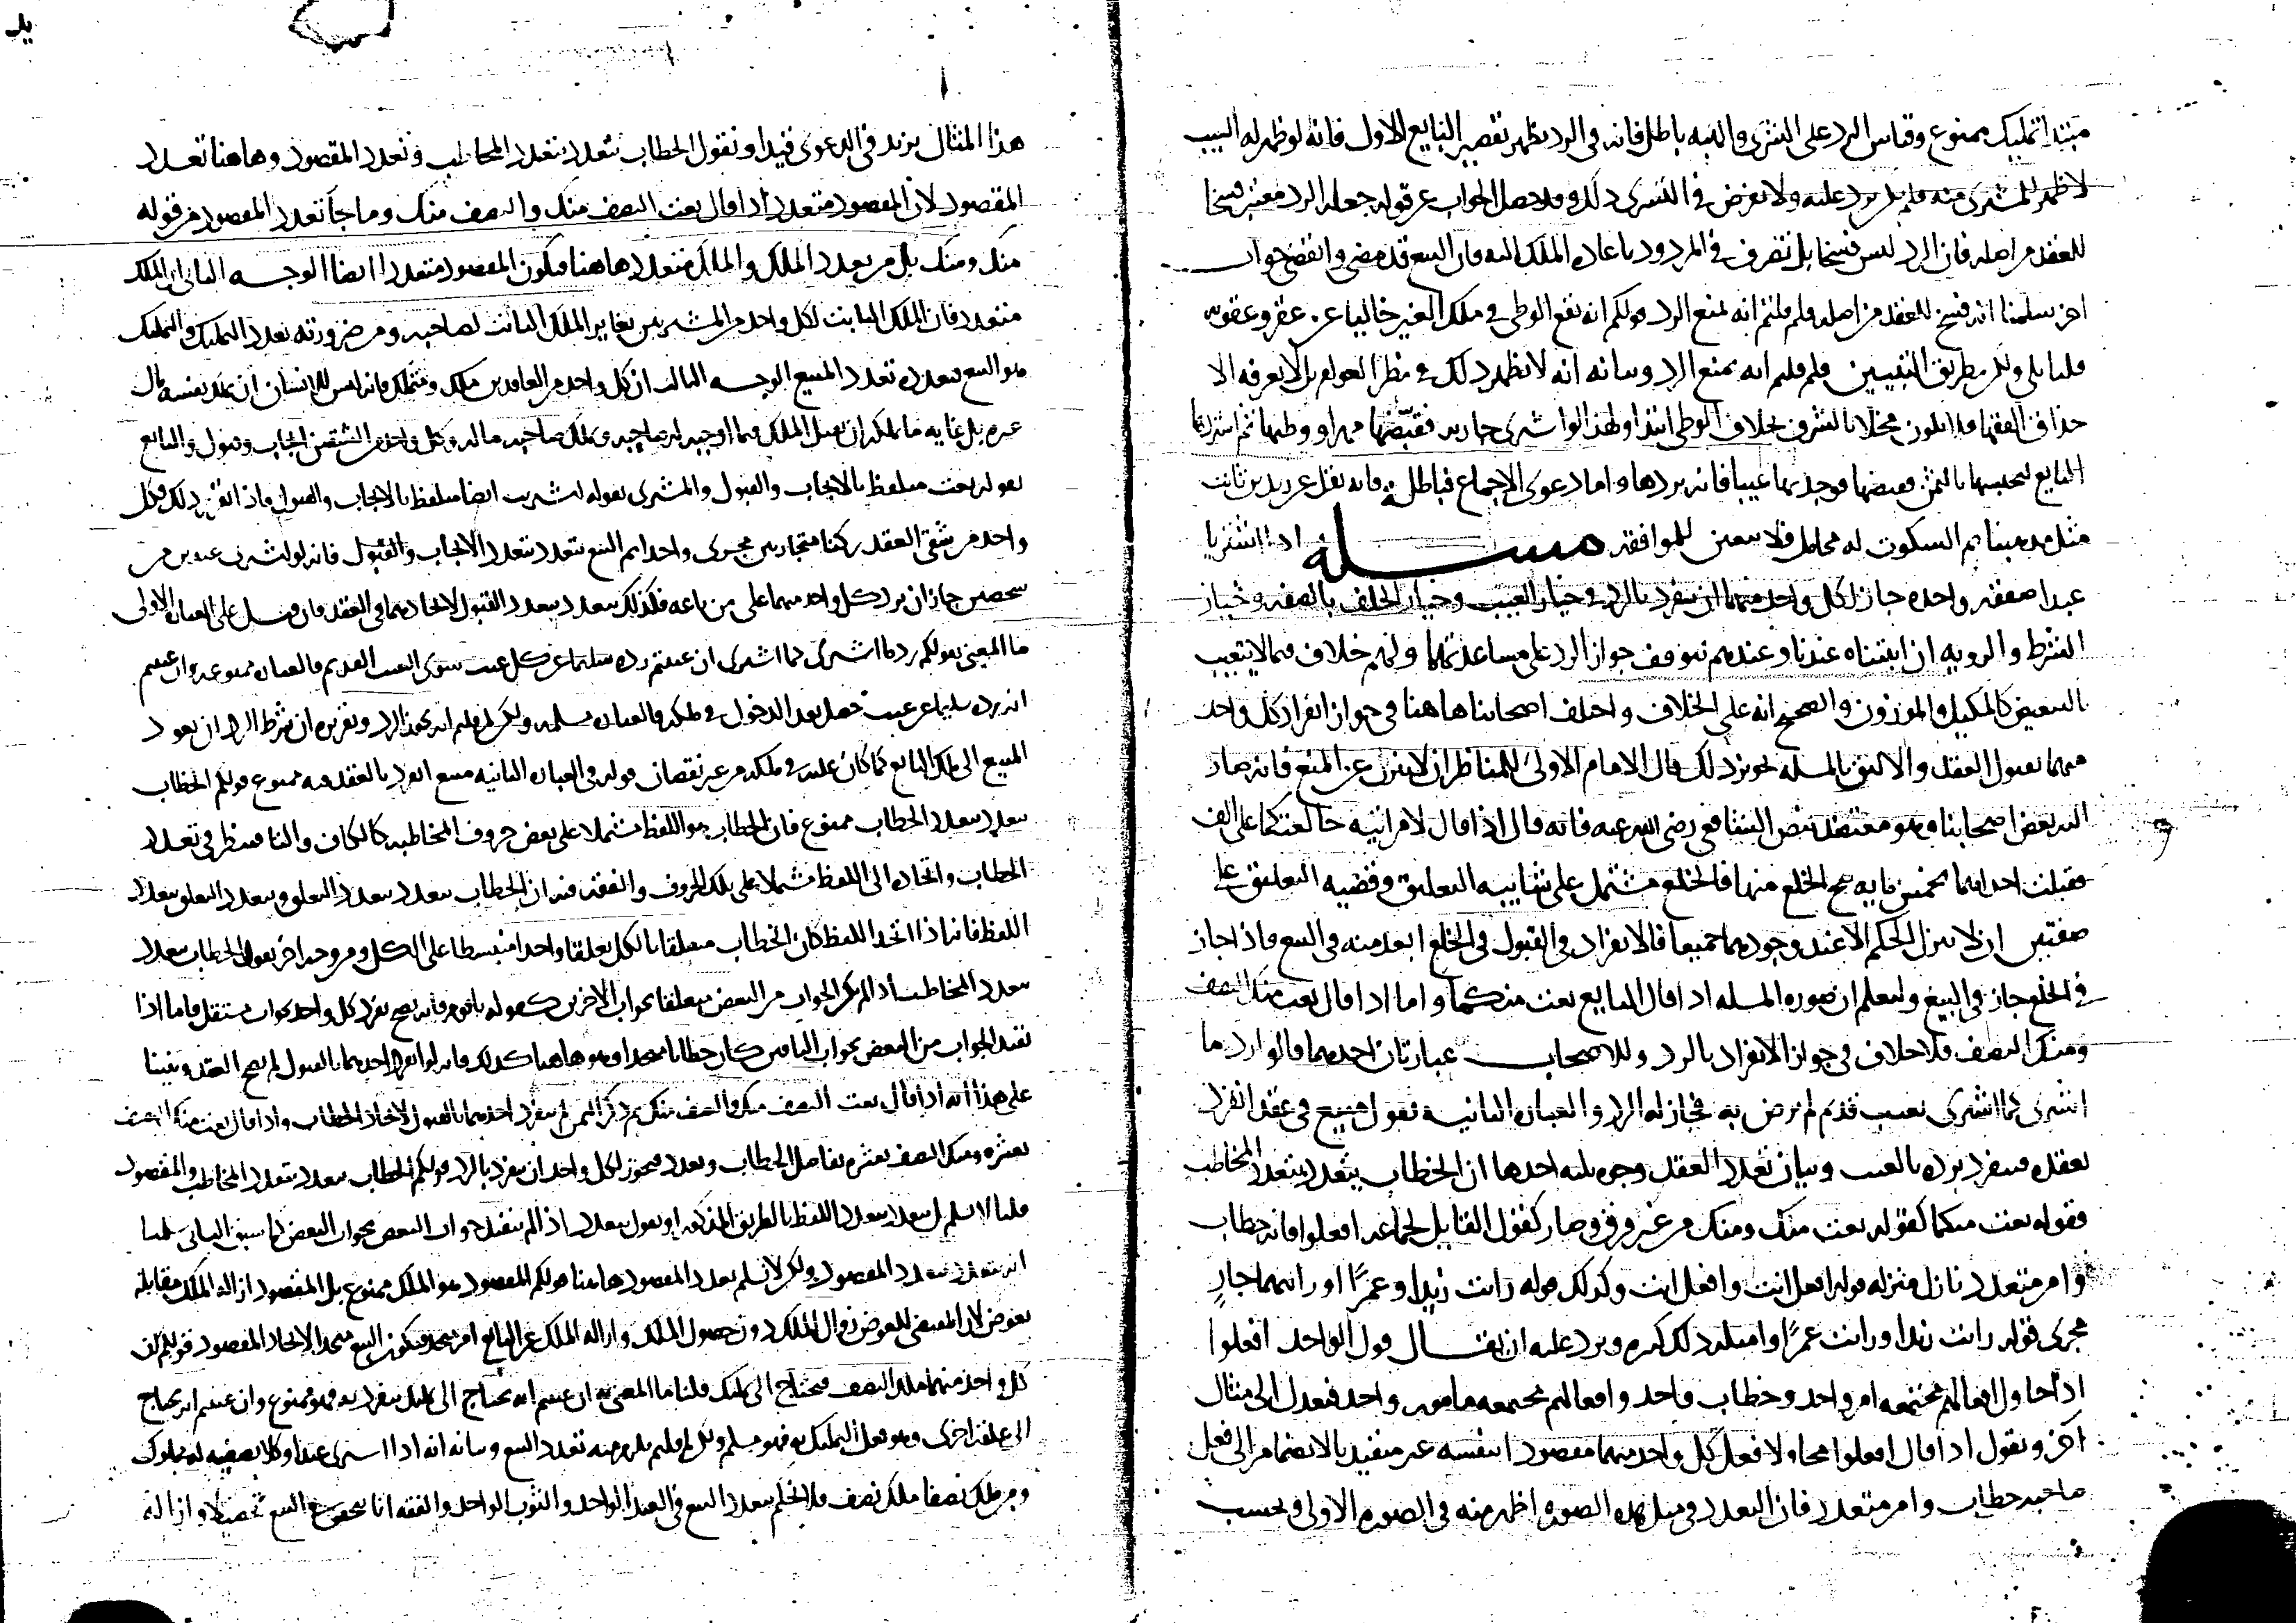 مبتدا تمليك ممنوع وقياس الرد على الشرى والهبه باطل فانه في الرد يظهر تقصير البايع الاول فانه لو ظهر له العيب
لا ظهر للمشترى منه فلم يرد عليه ولا يفرض في الشرى ذلك وقد حصل الجواب عن قوله جعل الرد معتبر فسخا
للعقد من اصله فان الرد ليس فسخا بل تصرف في المردود باعاده الملك اليه فان البيع قد مضى وانقضى جواب
اخر سلمنا انه فسخ للعقد من اصله ولم قلتم انه يمنع الرد قولكم انه يقع الوطي في ملك الغير خاليا عن عقر وعقوبه
قلنا بلى ولكن بطريق التبيين فلم قلتم انه يمنع الرد وبيانه انه لا يظهر ذلك في نظر العوام بل لا يعرفه الا
حذاق الفقها فلا يكون مخلا بالشرف بخلاف الوطي ابتدا ولهذا لو اشترى جاريه فقبضها ووطيها ثم استردها
البايع لحبسها بالثمن فقبضها فوجد بها عيبا فانه يردها واما دعوى الاجماع فباطله فانه نقل عن زيد بن ثابت
مثل مذهبنا ثم السكوت له محامل فلا يتعين للموافقه مسله اذا اشتريا
عبدا صفقه واحده جاز لكل واحد منهما ان ينفرد بالرد في خيار العيب وخيار الخلف بالصفه وخيار
الشرط والرويه ان اثبتناه عندنا وعندهم يتوقف جواز الرد على مساعدتهما ولهم خلاف فيما لا يتعيب
بالتبعيض كالمكيل والموزون والصحيح انه على الخلاف واختلف اصحابنا هاهنا في جواز انفراد كل واحد
منهما بقبول العقد والاليق بالمسله تجويز ذلك قال الامام الاولى للمناظر ان لا ينزل عن المنع فانه صار
اليه بعض اصحابنا وهو معتضد بنص الشافعي رضي الله عنه فانه قال اذا قال لامراتيه خالعتكما على الف
فقبلت احداهما بخمس مايه صح الخلع منها فالخلع مشتمل على شايبه التعليق وقضيه التعليق على
صفتين ان لا ينزل الحكم الا عند وجودهما جميعا فالانفراد في القبول في الخلع ابعد منه في البيع فاذا جاز
في الخلع جاز في البيع وليعلم ان صوره المسله اذا قال البايع بعت منكما واما اذا قال بعت منك النصف
ومنك النصف فلا خلاف في جواز الانفراد بالرد وللاصحاب عبارتان احداهما قالوا رد ما
اشترى كما اشترى بعيب قديم لم يرض به فجاز له الرد والعباره الثانيه نقول مبيع في عقد انفرد
بعقده فينفرد برده بالعيب وبيان تعدد العقد وجوه ثلثه احدها ان الخطاب يتعدد بتعدد المخاطب
فقوله بعت منكما كقوله بعت منك ومنك من غير فرق وصار كقول القايل لجماعه افعلوا فانه خطاب
وامر متعدد نازل منزله قوله افعل انت وافعل انت وكذلك قوله رايت زيدا وعمرًا او رايتهما جارٍ
مجرى قوله رايت زيدا ورايت عمرًا وامثله ذلك كثيره ويرد عليه ان يقال قول الواحد افعلوا
اذا حاول افعالهم مجتمعه امر واحد وخطاب واحد وافعالهم مجتمعه مامور واحد فنعدل الى مثال
اخر ونقول اذا قال افعلوا محاولا فعل كل واحد منهما مقصودا بنفسه غير متقيد بالانضمام الى فعل
صاحبه خطاب وامر متعدد فان التعدد في مثل هذه الصوره اظهر منه في الصوره الاولى وبحسب
هذا المثال يزيد في الدعوى قيدا ونقول الخطاب يتعدد بتعدد المخاطب وتعدد المقصود وهاهنا تعدد
المقصود لان المقصود متعدد اذا قال بعت النصف منك والنصف منك وما جا تعدد المقصود من قوله
منك ومنك بل من تعدد الملك والملك متعدد هاهنا فيكون المقصود متعددا ايضا الوجه الثاني ان الملك
متعدد فان الملك الثابت لكل واحد من المشتريين يغاير الملك الثابت لصاحبه ومن ضرورته تعدد التمليك والتمليك
هو البيع فتعدده تعدد المبيع الوجه الثالث ان كل واحد من العاقدين مملك ومتملك فانه ليس للانسان ان يملك بنفسه مال
غيره بل غايه ما يمكنه ان يقبل الملك فيما اوجبه له صاحبه ويملك صاحبه ماله وكل واحد من الشقين ايجاب وقبول والبايع
بقوله بعت متلفظ بالايجاب والقبول والمشترى بقوله اشتريت ايضا متلفظ بالايجاب والقبول فاذا تقرر ذلك فكل
واحد من شقي العقد ركنا متجاريين مجرى واحدا ثم البيع يتعدد بتعدد الايجاب والقبول فانه لو اشترى عبدين من
شخصين جاز ان يرد كل واحد منهما على من باعه فكذلك يتعدد بتعدد القبول لاتحادهما في العقد فان قيل على العباره الاولى
ما المعني بقولكم رد ما اشترى كما اشترى ان عنيتم رده سليما عن كل عيب سوى العيب القديم فالعباره ممنوعه وان عنيتم
انه رده سليما عن عيب حصل بعد الدخول في ملكه فالعباره مسلمه ولكن لم قلتم انه يجوز الرد وتقريره ان شرط الرد ان يعود
المبيع الى ملك البايع كما كان عليه في ملكه من غير نقصان قوله في العباره الثانيه مبيع انفرد بالعقد فيه ممنوع قولكم الخطاب
يتعدد بتعدد الخطاب ممنوع فان الخطاب هو اللفظ مشتملا على بعض حروف المخاطبه كالكاف والتا فينظر في تعدد
الخطاب واتحاده الى اللفظ مشتملا على تلك الحروف والفقه فيه ان الخطاب يتعدد بتعدد التعلق وتعدد التعلق بتعدد
اللفظ فانه اذا اتحد اللفظ كان الخطاب متعلقا بالكل تعلقا واحدا منبسطا على الكل ومن وجه اخر نقول الخطاب يتعدد
بتعدد المخاطب اذا لم يكن الجواب من البعض متعلقا بجواب الاخرين كقوله يا قوم فانه يصح تفرد كل واحد بجواب مستقل فاما اذا
تقيد الجواب من البعض بجواب الباقين كان خطابا متحدا وهو هاهنا كذلك فانه لو انفرد احدهما بالقبول لم يصح العقد وبنينا
على هذا انه اذا قال بعت النصف منك والنصف منك ثم ذكر الثمن لم ينفرد احدهما بالقبول لاتحاد الخطاب واذا قال بعت منك النصف
بعشره ومنك النصف بعشره تفاصل الخطاب وتعدد فيجوز لكل واحد ان ينفرد بالرد قولكم الخطاب يتعدد بتعدد المخاطب والمقصود
قلنا لا نسلم بل يتعدد بتعدد اللفظ بالطريق المذكور او نقول يتعدد اذا لم يتقيد جواب البعض بجواب البعض كما سبق الثاني سلمنا
انه يتعدد بتعدد المقصود ولكن لا نسلم تعدد المقصود هاهنا قولكم المقصود هو الملك ممنوع بل المقصود ازاله الملك مقابله
بعوض لان المقتضى للعوض زوال الملك دون حصول الملك وازاله الملك عن البايع امر متحد فيكون البيع متحدا لاتحاد المقصود قولكم ان
كل واحد منهما ملك النصف فيحتاج الى تمليك قلنا ما المعني به ان عنيتم انه يحتاج الى تمليك ينفرد به فهو ممنوع وان عنيتم انه يحتاج
الى علقه اخرى وهو تعلق التمليك به فهو مسلم ولكن لم قلتم يلزم منه تعدد البيع وبيانه انه اذا اشترى عبدا وكلا نصفيه له مملوك
ومن ملك نصفا ملك نصفا فلا نحكم بتعدد البيع في العبد الواحد والثوب الواحد والفقه انا نحقق البيع تحصيلا وازاله